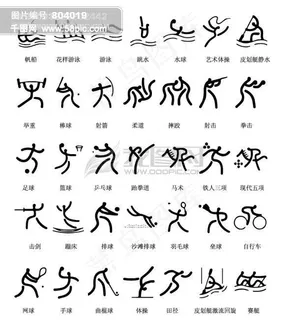 图片编号: 804019
千图网 www.58pic.com
帆船 花样游泳 游泳 跳水 水球 艺术体操 皮划艇静水
举重 棒球 射箭 柔道 摔跤 射击 拳击
足球 篮球 乒乓球 跆拳道 马术 铁人三项 现代五项
击剑 蹦床 排球 沙滩排球 羽毛球 坐球 自行车
网球 手球 曲棍球 体操 田径 皮划艇激流回旋 赛艇